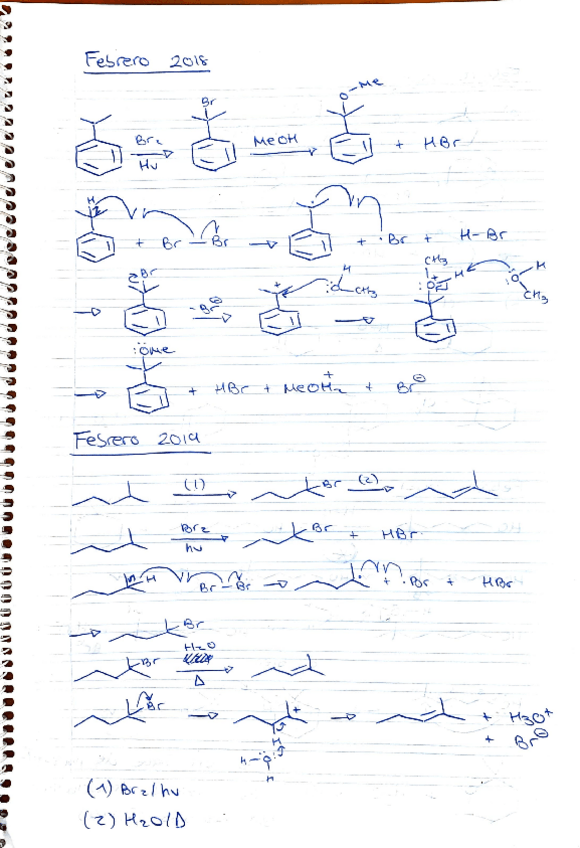 Febrero 2018
Br O-Me
Br2 hν MeOH + HBr
H + Br-Br + ·Br + H-Br
Br -Br⊖ + :O H CH3 CH3 :O+ H :O H CH3
:OMe
+ HBr + MeOH2+ + Br⊖
Febrero 2019
(1) Br (2)
Br2 hν Br + HBr
H Br-Br + ·Br + HBr
Br
Br H2O Δ
Br + H H-O H + H3O+
+ Br⊖
(1) Br2/hν
(2) H2O/Δ